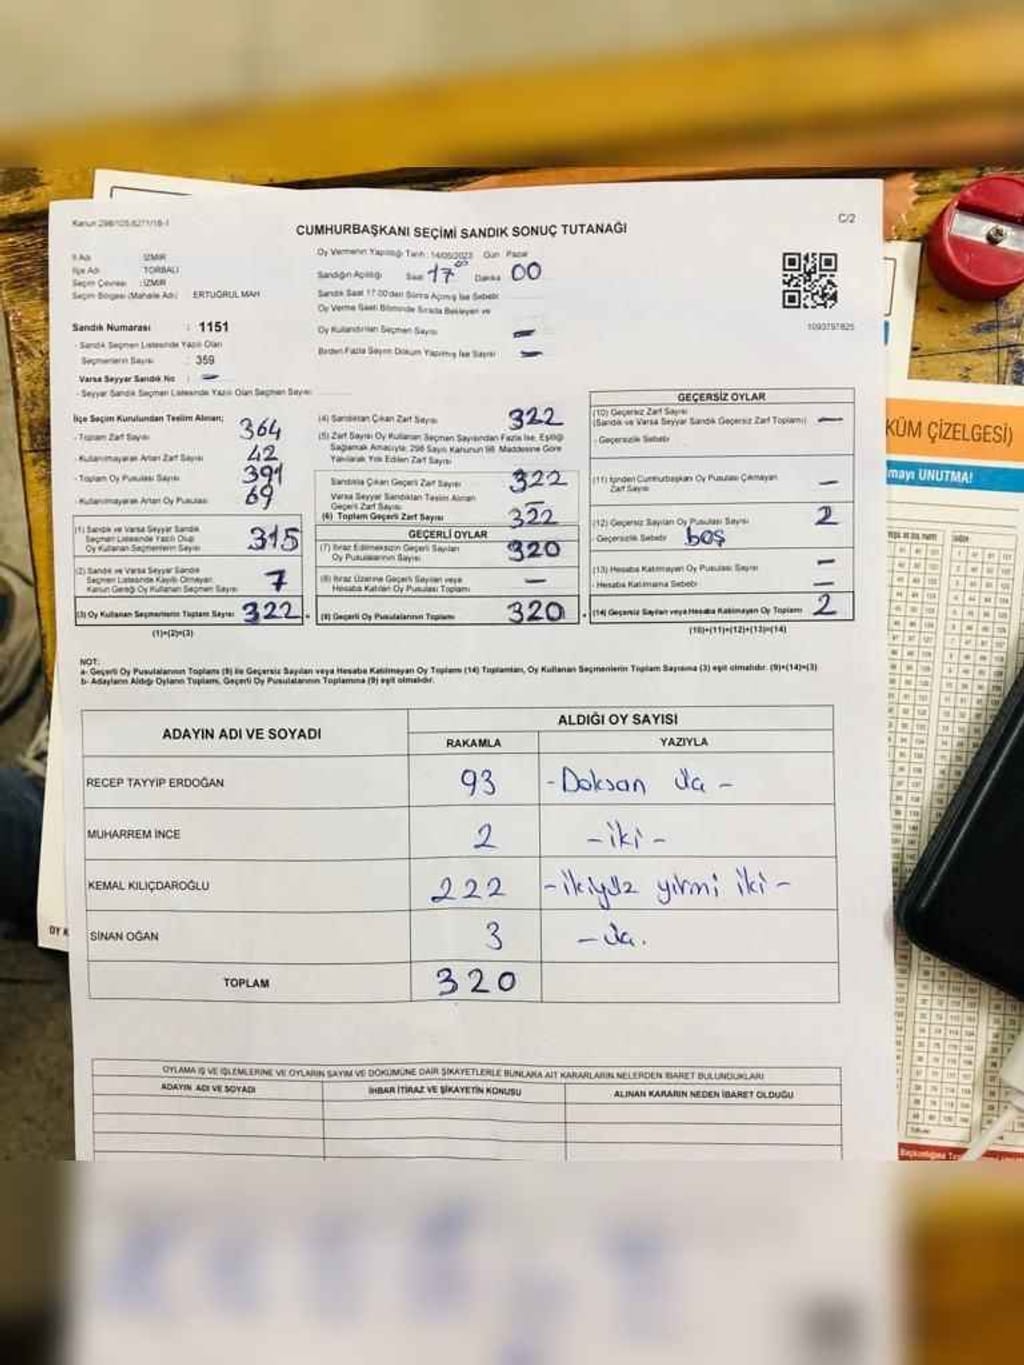 Kanun 298/105,6271/16-1
C/2
CUMHURBAŞKANI SEÇİMİ SANDIK SONUÇ TUTANAĞI
İl Adı : İZMİR
İlçe Adı : TORBALI
Seçim Çevresi : İZMİR
Seçim Bölgesi (Mahalle Adı) : ERTUĞRUL MAH
Sandık Numarası : 1151
- Sandık Seçmen Listesinde Yazılı Olan
Seçmenlerin Sayısı : 359
Varsa Seyyar Sandık No : -
- Seyyar Sandık Seçmen Listesinde Yazılı Olan Seçmen Sayısı :
Oy Vermenin Yapıldığı Tarih : 14/05/2023 Gün : Pazar
Sandığın Açıldığı Saat 17 00 Dakika 00
Sandık Saat 17.00'den Sonra Açılmış İse Sebebi
Oy Verme Saati Bitiminde Sırada Bekleyen ve
Oy Kullandırılan Seçmen Sayısı -
Birden Fazla Sayım Döküm Yapılmış İse Sayısı -
1093797825
İlçe Seçim Kurulundan Teslim Alınan;
- Toplam Zarf Sayısı 364
- Kullanılmayarak Artan Zarf Sayısı 42
- Toplam Oy Pusulası Sayısı 391
- Kullanılmayarak Artan Oy Pusulası 69
(1) Sandık ve Varsa Seyyar Sandık
Seçmen Listesinde Yazılı Olup
Oy Kullanan Seçmenlerin Sayısı 315
(2) Sandık ve Varsa Seyyar Sandık
Seçmen Listesinde Kayıtlı Olmayan
Kanun Gereği Oy Kullanan Seçmen Sayısı 7
(3) Oy Kullanan Seçmenlerin Toplam Sayısı 322
(1)+(2)=(3)
(4) Sandıktan Çıkan Zarf Sayısı 322
(5) Zarf Sayısı Oy Kullanan Seçmen Sayısından Fazla İse, Eşitliği
Sağlamak Amacıyla; 298 Sayılı Kanunun 98. Maddesine Göre
Yakılarak Yok Edilen Zarf Sayısı
Sandıkta Çıkan Geçerli Zarf Sayısı 322
Varsa Seyyar Sandıktan Teslim Alınan
Geçerli Zarf Sayısı -
(6) Toplam Geçerli Zarf Sayısı 322
GEÇERLİ OYLAR
(7) İtiraz Edilmeksizin Geçerli Sayılan
Oy Pusulalarının Sayısı 320
(8) İtiraz Üzerine Geçerli Sayılan veya
Hesaba Katılan Oy Pusulası Toplamı -
(9) Geçerli Oy Pusulalarının Toplamı 320
GEÇERSİZ OYLAR
(10) Geçersiz Zarf Sayısı
(Sandık ve Varsa Seyyar Sandık Geçersiz Zarf Toplamı) -
- Geçersizlik Sebebi
(11) İçinden Cumhurbaşkanı Oy Pusulası Çıkmayan
Zarf Sayısı -
(12) Geçersiz Sayılan Oy Pusulası Sayısı 2
- Geçersizlik Sebebi boş
(13) Hesaba Katılmayan Oy Pusulası Sayısı -
- Hesaba Katılmama Sebebi -
(14) Geçersiz Sayılan veya Hesaba Katılmayan Oy Toplamı 2
(10)+(11)+(12)+(13)=(14)
NOT:
a- Geçerli Oy Pusulalarının Toplamı (9) ile Geçersiz Sayılan veya Hesaba Katılmayan Oy Toplamı (14) Toplamları, Oy Kullanan Seçmenlerin Toplam Sayısına (3) eşit olmalıdır. (9)+(14)=(3)
b- Adayların Aldığı Oyların Toplamı, Geçerli Oy Pusulalarının Toplamına (9) eşit olmalıdır.
ADAYIN ADI VE SOYADI
ALDIĞI OY SAYISI
RAKAMLA YAZIYLA
RECEP TAYYİP ERDOĞAN 93 - Doksan üç -
MUHARREM İNCE 2 - iki -
KEMAL KILIÇDAROĞLU 222 - ikiyüz yirmi iki -
SİNAN OĞAN 3 - üç.
TOPLAM 320
OYLAMA İŞ VE İŞLEMLERİNE VE OYLARIN SAYIM VE DÖKÜMÜNE DAİR ŞİKAYETLERLE BUNLARA AİT KARARLARIN NELERDEN İBARET BULUNDUKLARI
ADAYIN ADI VE SOYADI İHBAR İTİRAZ VE ŞİKAYETİN KONUSU ALINAN KARARIN NEDEN İBARET OLDUĞU
KÜM ÇİZELGESİ)
mayı UNUTMA!
OY K